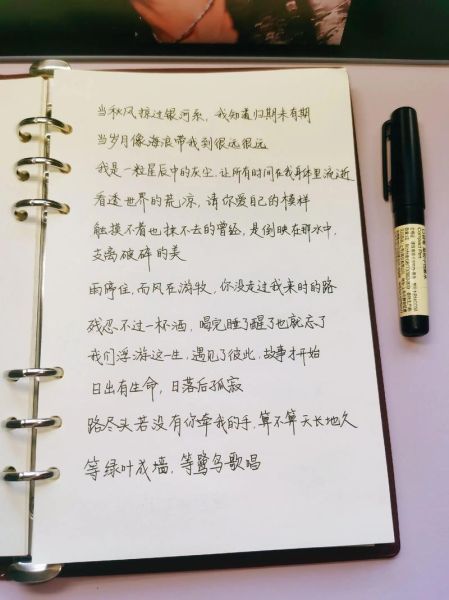 当秋风掠过银河系，我知道归期未有期
当岁月像海浪带我到很远很远
我是一粒星辰中的灰尘，让所有时间在我身体里流逝
看透世界的荒凉，请你爱自己的模样
触摸不着也抹不去的曾经，是倒映在那水中，
支离破碎的美
雨停住，而风在游牧，你没走过我来时的路
残忍不过一杯酒，喝完睡了醒了也就忘了
我们浮游这一生，遇见了彼此，故事才开始
日出有生命，日落后孤寂
路尽头若没有你牵我的手，算不算天长地久
等绿叶成墙，等鹭鸟歌唱